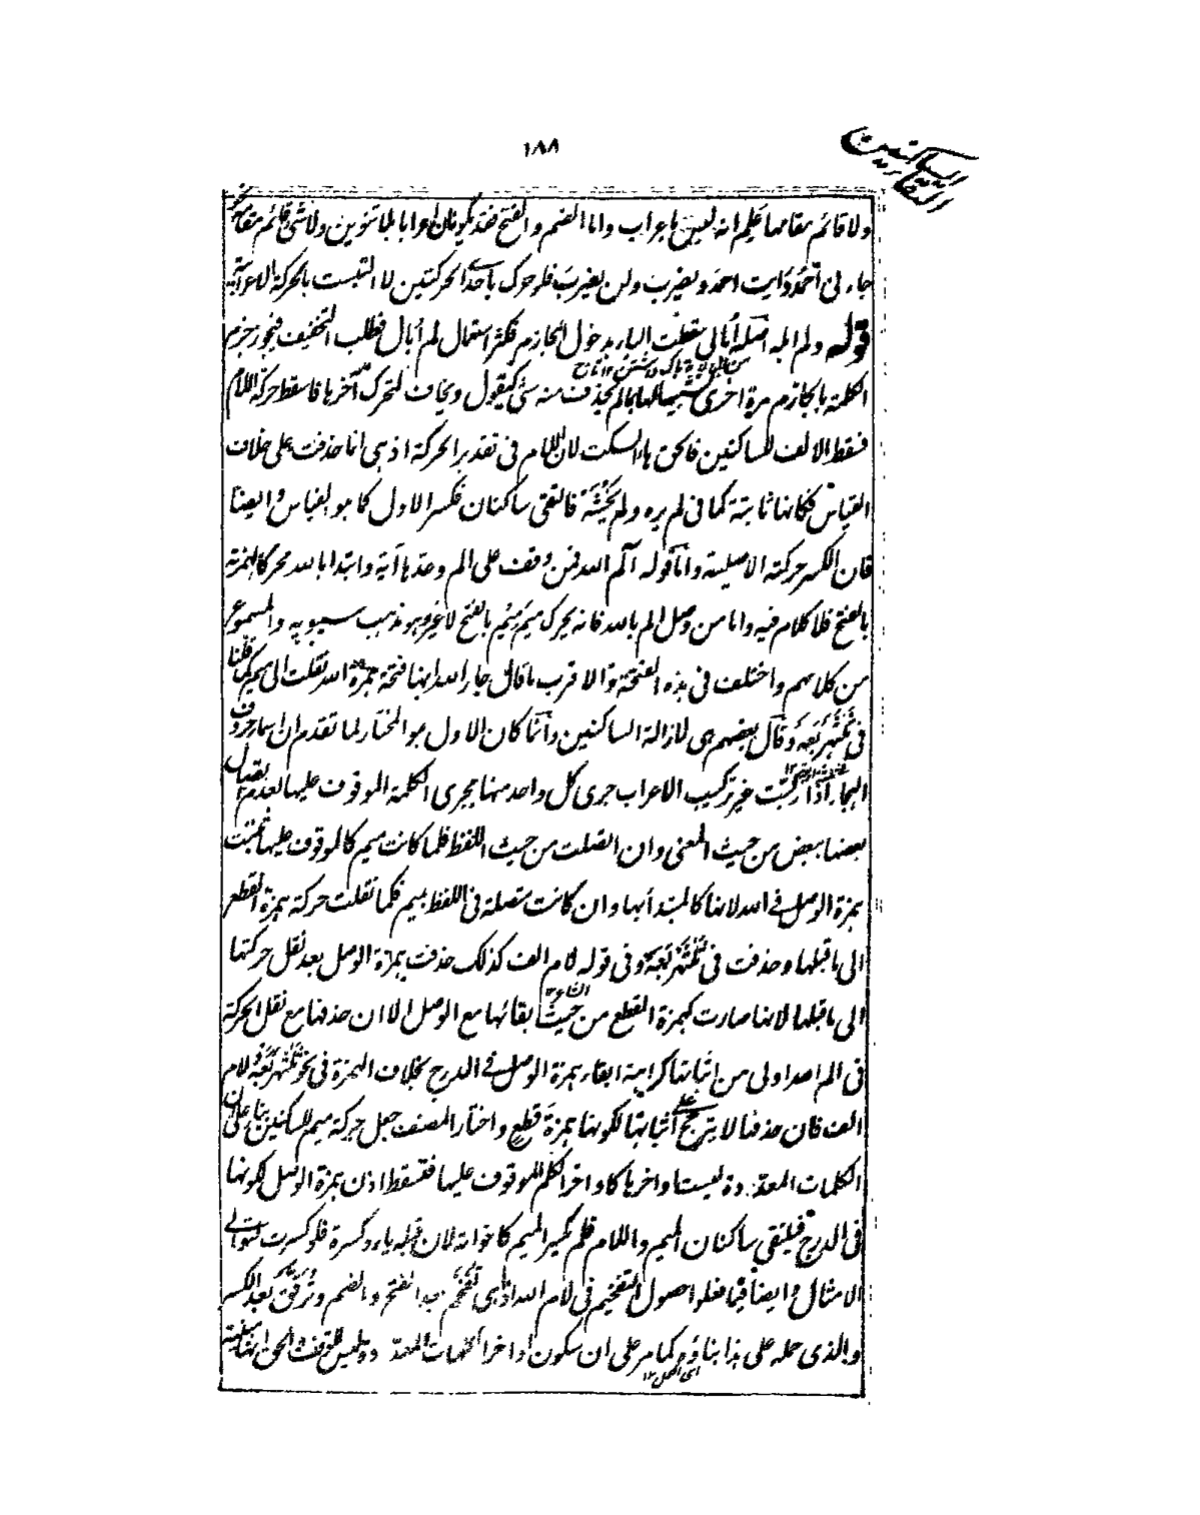 ١٨٨
التقاء الساكنين
ولا قائم مقامها علم انه ليس باعراب واما الضم والفتح فقد يكونان اعرابا بلا تنوين ولا شئ قائم مقامه نحو
جاءنى احمدُ ورأيت احمدَ ويضربُ ولن يضربَ فلو حرك باحدى الحركتين لا التبست بالحركة الاعرابية
قوله ولم ابله اصله أبالى سقطت الياء بدخول الجازم فكثر استعمال لم أبال فطلب التخفيف فجوز جزم
الكلمة بالجازم مرة اخرى تشبيها لها بما لم يحذف منه شئ كيقول ويخاف لتحرك آخرها فاسقط حركة اللام
فسقط الالف للساكنين فالحق هاء السكت لان اللام فى تقدير الحركة اذ هى انما حذفت على خلاف
القياس فكانها ثابتة كما فى لم يره ولم يخشه فالتقى ساكنان فكسر الاول كما هو القياس وايضا
فان الكسر حركته الاصلية واما قوله الم الله فمن وقف على الم وعدها آية وابتدا بالله محركا لهمزته
بالفتح فلا كلام فيه واما من وصل الم بالله فانه يحرك ميم ميم بالفتح لا غير وهو مذهب سيبويه والمسموع
من كلامهم واختلف فى هذه الفتحة والاقرب ما قال جار الله انها فتحة همزة الله نقلت الى ميم كما قلنا
فى ثلثهربعه وقال بعضهم هى لازالة الساكنين وانما كان الاول هو المختار لما تقدم ان اسماء حروف
الهجاء اذا ركبت غير تركيب الاعراب جرى كل واحد منها مجرى الكلمة الموقوف عليها لعدم اتصال
بعضها ببعض من حيث المعنى وان اتصلت من حيث اللفظ فلما كانت ميم كالموقوف عليها ثبتت
همزة الوصل فى الله لانها كالمبتدأ بها وان كانت متصلة فى اللفظ بميم فكما نقلت حركة همزة القطع
الى ما قبلها وحذفت فى ثلثهربعه وفى قوله لام الف كذلك حذفت همزة الوصل بعد نقل حركتها
الى ما قبلها لانها صارت كهمزة القطع من حيث بقائها مع الوصل الا ان حذفها مع نقل الحركة
فى الم الله اولى من اثباتها كراهية ابقاء همزة الوصل فى الدرج بخلاف الهمزة فى نحو ثلثهربعه ولام
الف فان حذفها لا يترجح على اثباتها لكونها همزة قطع واختار المصنف جعل حركة ميم للساكنين بناء على ان
الكلمات المعدودة ليست اواخرها كاواخر الكلم الموقوف عليها فتسقط اذن همزة الوصل لكونها
فى الدرج فيلتقى ساكنان الميم واللام فلم يكسر الميم كاخواته لان قبله ياء وكسرة فلو كسرت لتوالت
الامثال وايضا فيما فعلوا حصول التفخيم فى لام الله اذ هى تفخم بعد الفتح والضم وترقق بعد الكسر
والذى حمله على هذا بناؤه كما مر على ان سكون اواخر الكلمات المعدودة ليس للوقف والحق انها مبنية